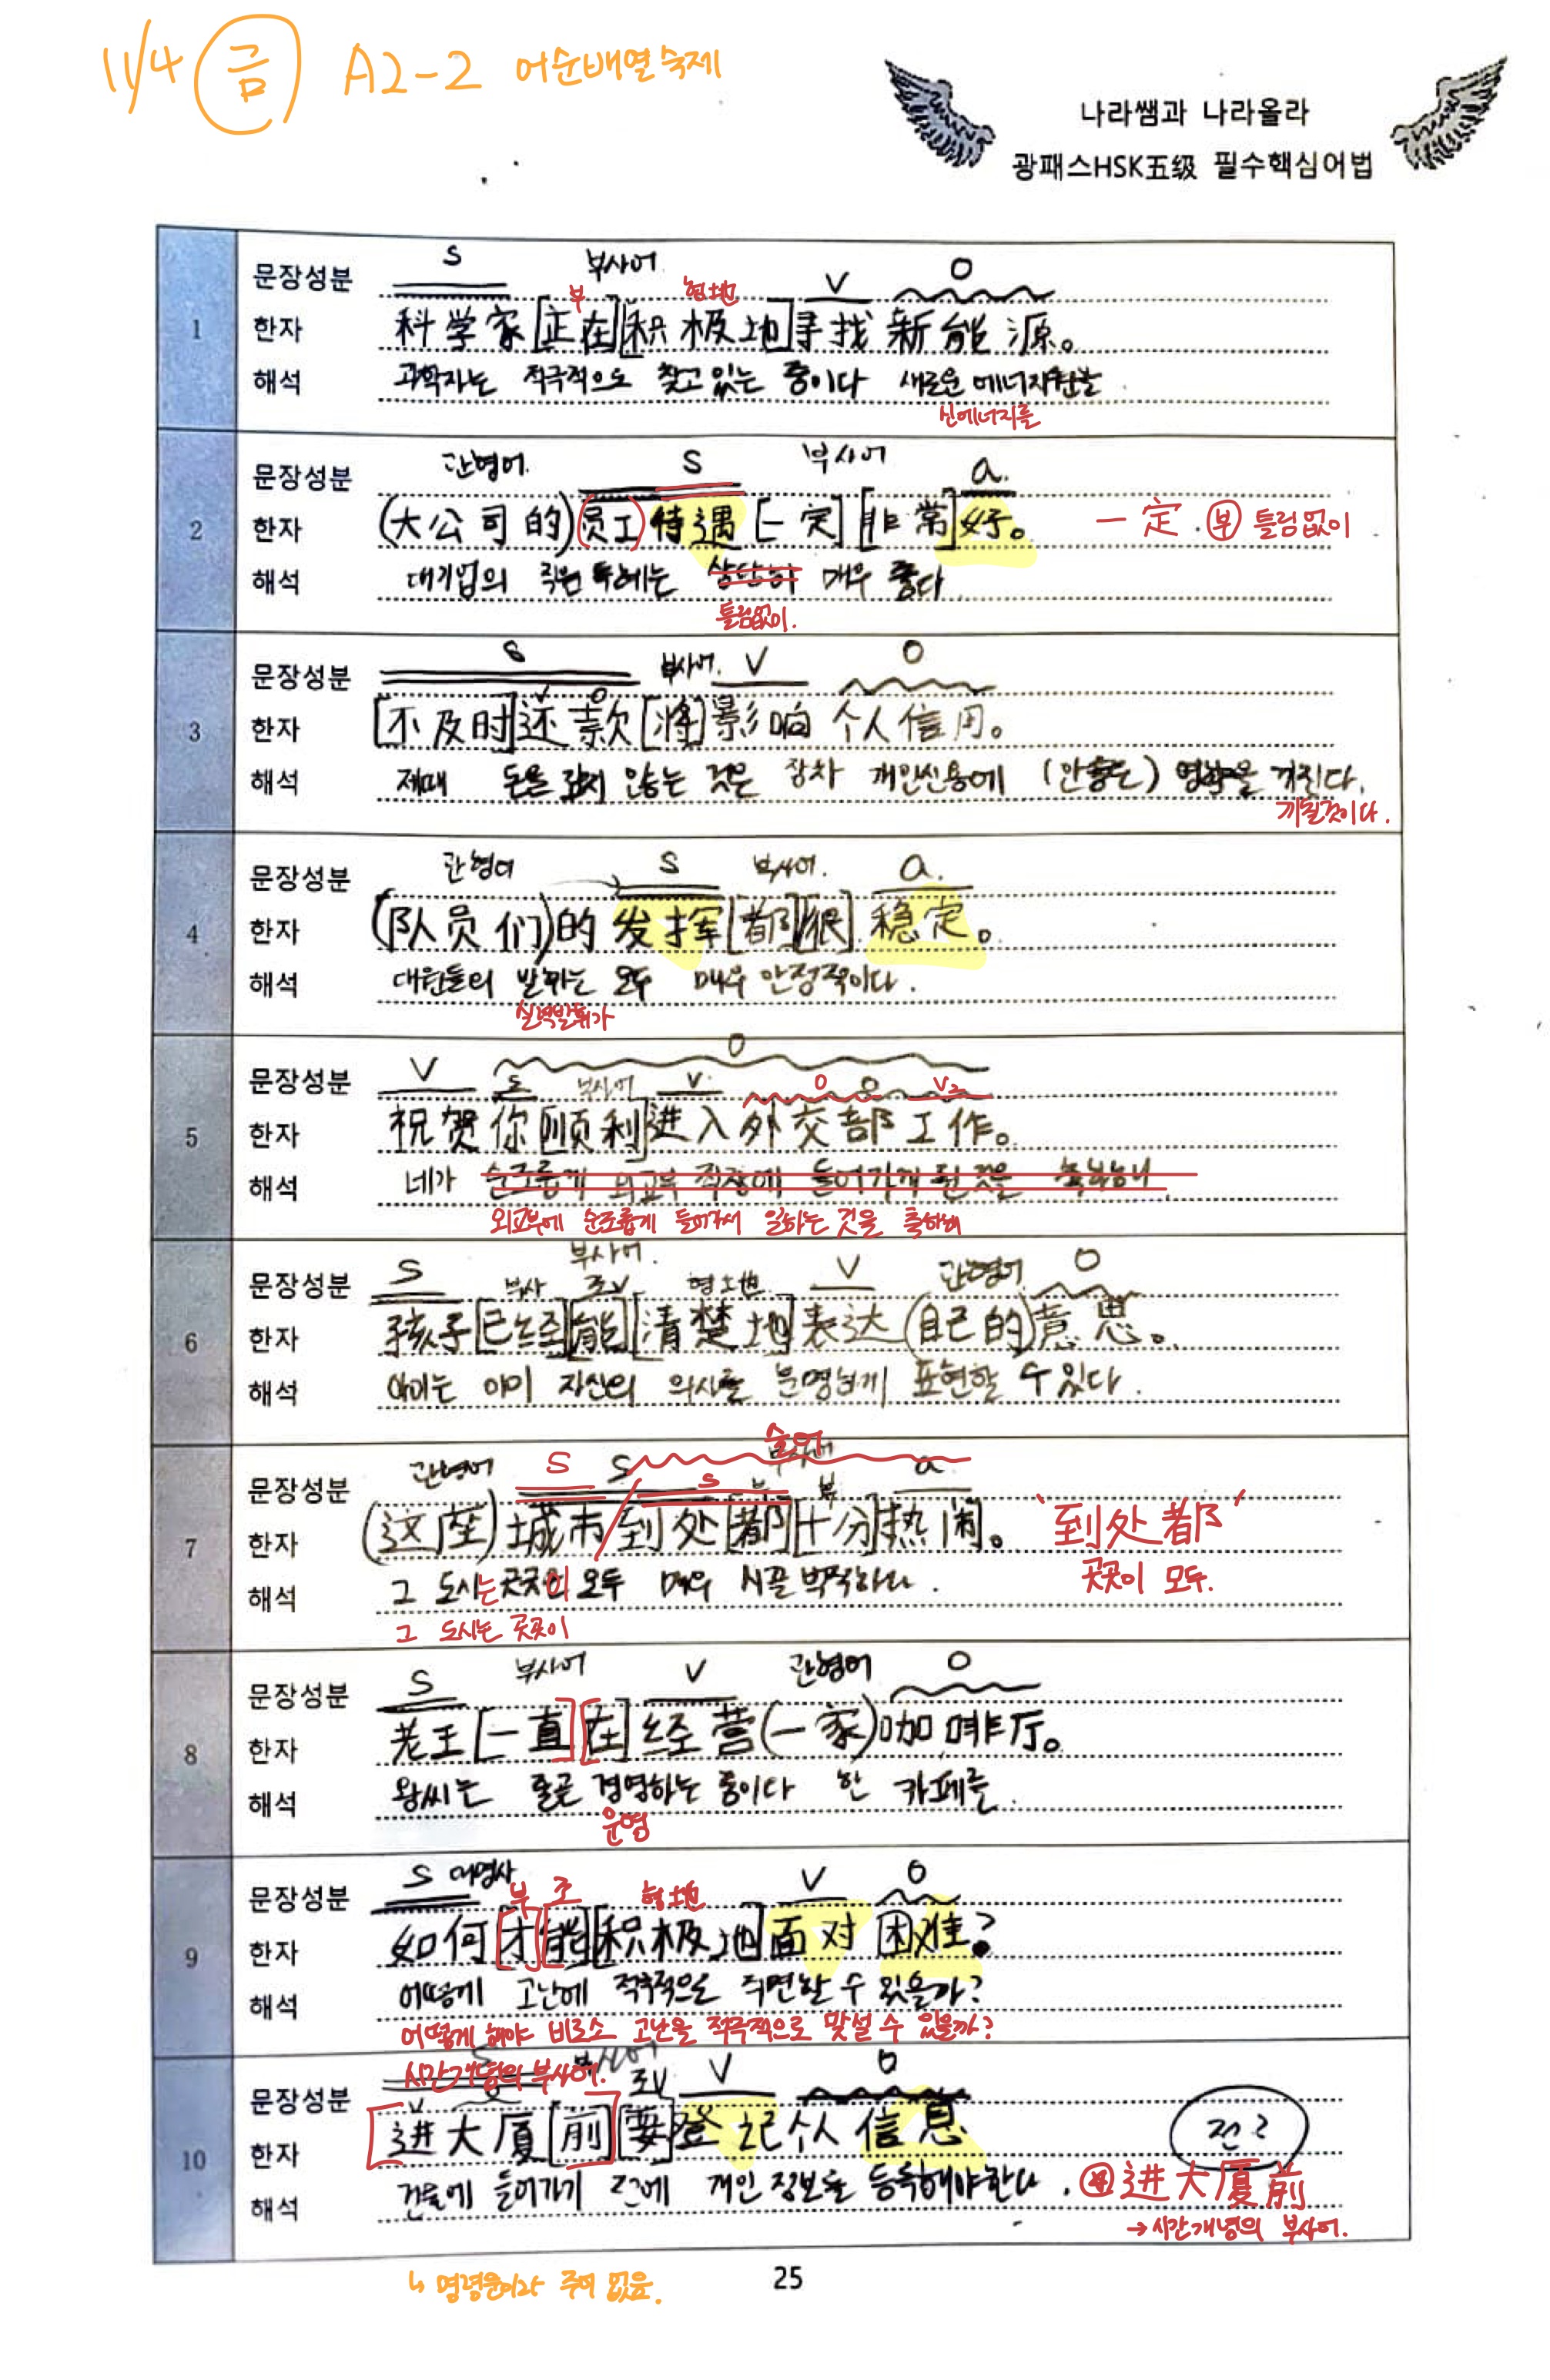 11/4 금 A2-2 어순배열숙제
나라쌤과 나라올라
광패스HSK五级 필수핵심어법
1
문장성분 S 부사어 부 형地 V O
한자 科学家[正在][积极地]寻找新能源。
해석 과학자는 적극적으로 찾고 있는 중이다 새로운 에너지원을
신에너지를
2
문장성분 관형어 S 부사어 a.
한자 (大公司的)(员工)待遇[一定][非常]好。 一定. 부 틀림없이
해석 대기업의 직원 대우는 상당히 매우 좋다
틀림없이.
3
문장성분 S V O 부사어. V O
한자 [不及时]还款[将]影响个人信用。
해석 제때 돈을 갚지 않는 것은 장차 개인신용에 (안좋은) 영향을 끼친다.
끼칠것이다.
4
문장성분 관형어 S 부사어. a.
한자 (队员们)的发挥[都][很]稳定。
해석 대원들의 발휘는 모두 매우 안정적이다.
실력발휘가
5
문장성분 V O S 부사어 V O O V2
한자 祝贺你[顺利]进入外交部工作。
해석 네가 순조롭게 외교부 직장에 들어가게 된 것을 축하하네
외교부에 순조롭게 들어가서 일하는 것을 축하해
6
문장성분 S 부사어. 부사 조V 형地 V 관형어 O
한자 孩子[已经][能][清楚地]表达(自己的)意思。
해석 아이는 이미 자신의 의사를 분명하게 표현할 수 있다.
7
문장성분 관형어 S S 술어 S 부사어 부 a
한자 (这座)城市/到处[都][十分]热闹。 '到处都'
곳곳이 모두.
해석 그 도시는 곳곳이 모두 매우 시끌벅적하다.
그 도시는 곳곳이
8
문장성분 S 부사어 V 관형어 O
한자 老王[一直][在]经营(一家)咖啡厅。
해석 왕씨는 줄곧 경영하는 중이다 한 카페를.
운영
9
문장성분 S 대명사 부 조 형地 V O
한자 如何[才][能][积极地]面对困难?
해석 어떻게 고난에 적극적으로 직면할 수 있을까?
어떻게 해야 비로소 고난을 적극적으로 맞설 수 있을까?
10
시간개념의 부사어.
문장성분 S 부사어 V 조V V O
한자 [进大厦[前][要]登记个人信息
해석 건물에 들어가기 전에 개인 정보를 등록해야한다. 부 进大厦前
→시간개념의 부사어.
↳ 명령문이라 주어 없음.
25